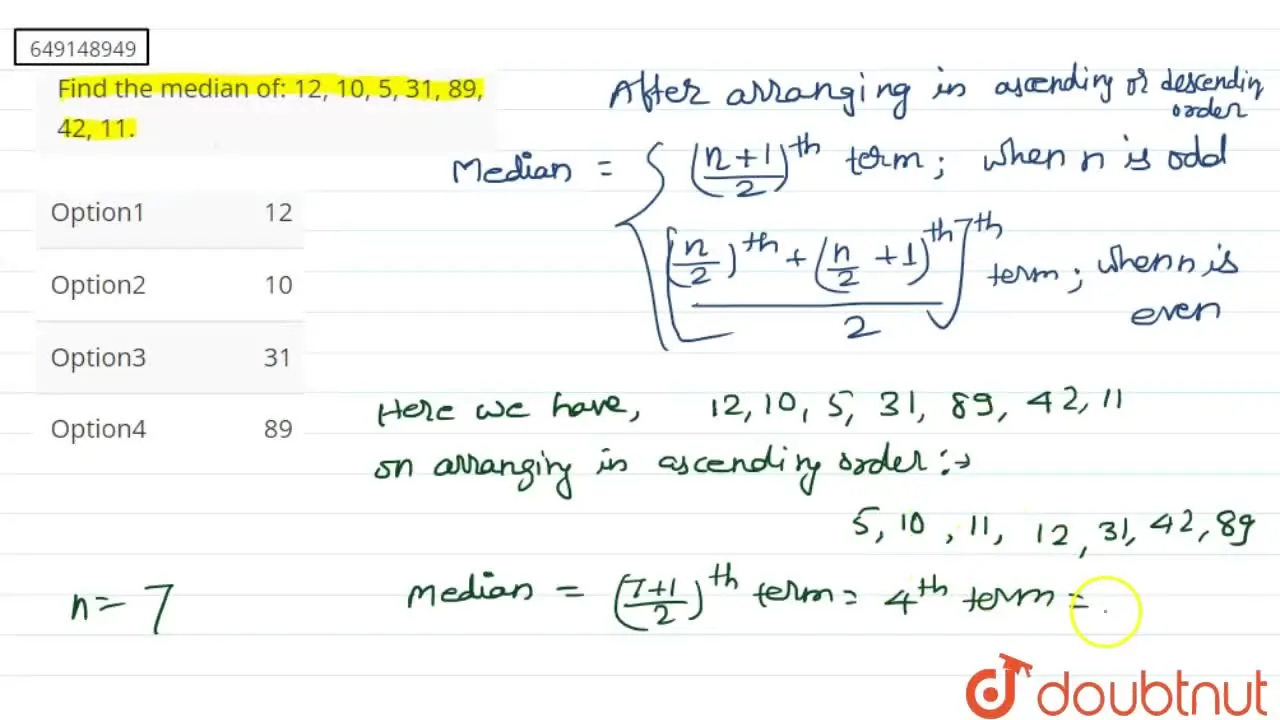 649148949
Find the median of: 12, 10, 5, 31, 89,
42, 11.
Option1 12
Option2 10
Option3 31
Option4 89
After arranging in ascending or descending
order
Median = { ((n+1)/2)^th term; when n is odd
[((n/2)^th + (n/2 + 1)^th)/2]^th term; when n is
even
Here we have, 12, 10, 5, 31, 89, 42, 11
on arranging in ascending order :→
5, 10, 11, 12, 31, 42, 89
n = 7
Median = ((7+1)/2)^th term = 4^th term =
doubtnut